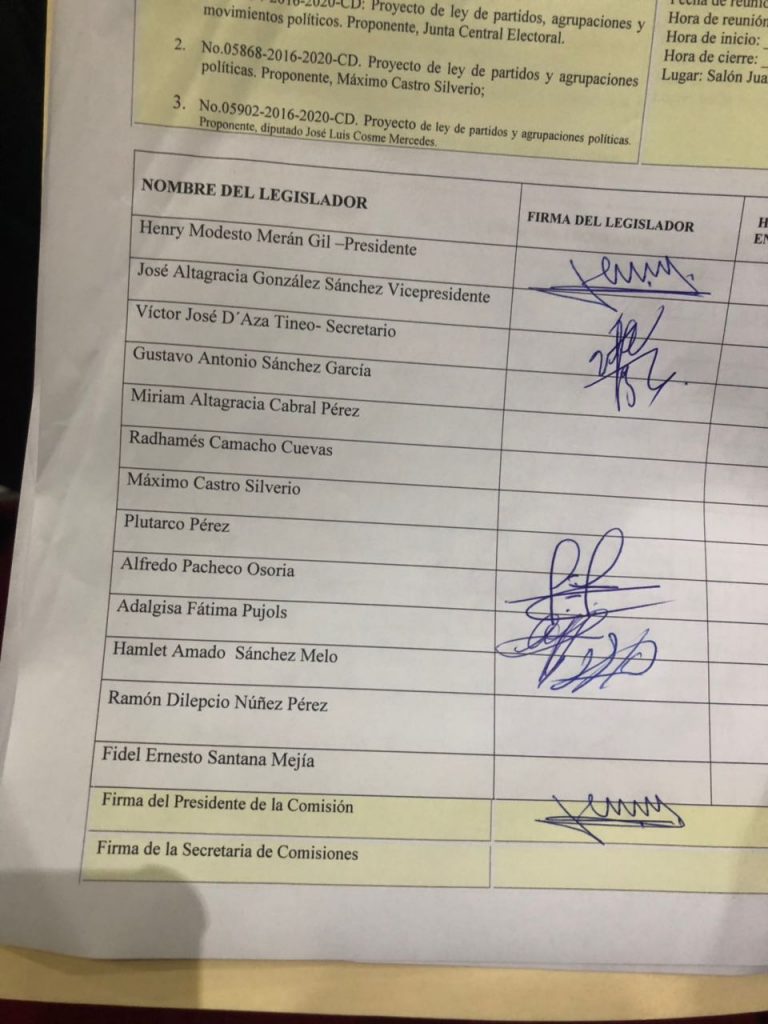 2016-2020-CD: Proyecto de ley de partidos, agrupaciones y
movimientos políticos. Proponente, Junta Central Electoral.
2. No.05868-2016-2020-CD. Proyecto de ley de partidos y agrupaciones
políticas. Proponente, Máximo Castro Silverio;
3. No.05902-2016-2020-CD. Proyecto de ley de partidos y agrupaciones políticas.
Proponente, diputado José Luis Cosme Mercedes.
Hora de reunión
Hora de inicio: _
Hora de cierre: _
Lugar: Salón Jua
NOMBRE DEL LEGISLADOR
FIRMA DEL LEGISLADOR
H
EN
Henry Modesto Merán Gil –Presidente
José Altagracia González Sánchez Vicepresidente
Víctor José D´Aza Tineo- Secretario
Gustavo Antonio Sánchez García
Miriam Altagracia Cabral Pérez
Radhamés Camacho Cuevas
Máximo Castro Silverio
Plutarco Pérez
Alfredo Pacheco Osoria
Adalgisa Fátima Pujols
Hamlet Amado Sánchez Melo
Ramón Dilepcio Núñez Pérez
Fidel Ernesto Santana Mejía
Firma del Presidente de la Comisión
Firma de la Secretaria de Comisiones